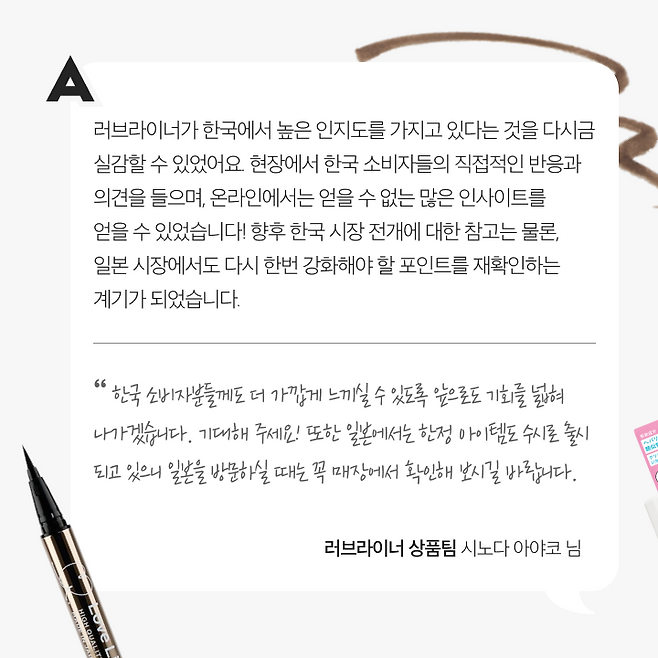 A
러브라이너가 한국에서 높은 인지도를 가지고 있다는 것을 다시금
실감할 수 있었어요. 현장에서 한국 소비자들의 직접적인 반응과
의견을 들으며, 온라인에서는 얻을 수 없는 많은 인사이트를
얻을 수 있었습니다! 향후 한국 시장 전개에 대한 참고는 물론,
일본 시장에서도 다시 한번 강화해야 할 포인트를 재확인하는
계기가 되었습니다.
“ 한국 소비자분들께도 더 가깝게 느끼실 수 있도록 앞으로도 기회를 넓혀
나가겠습니다. 기대해 주세요! 또한 일본에서는 한정 아이템도 수시로 출시
되고 있으니 일본을 방문하실 때는 꼭 매장에서 확인해 보시길 바랍니다.
러브라이너 상품팀 시노다 아야코 님
Love L
HIGH QUALIT